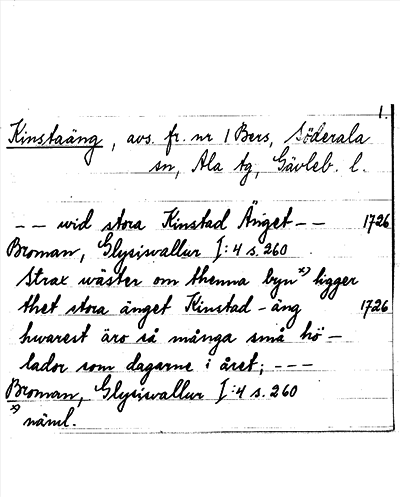 1.
Kinstaäng, avs. fr. nr 1 Bers, Söderala
sn, Ala tg, Gävleb. l.
-- wid stora Kinstad Änget -- 1726
Broman, Glysisvallur I:4 s. 260
Strax wäster om thenna byn *) ligger
thet stora änget Kinstad-äng 1726
hwarest äro så många små hö-
lador som dagarne i året; ---
Broman, Glysisvallur I:4 s. 260
*) näml.